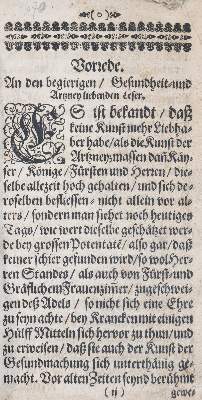 ( o )
Vorrede.
An den begierigen / Gesundheit-und
Artzney liebenden Leser.
ES ist bekandt / daß
keine Kunst mehr Liebha-
ber habe / als die Kunst der
Artzney: massen dañ Käy-
ser / Könige / Fürsten und Herren / die-
selbe allezeit hoch gehalten / und sich de-
roselben beflissen-nicht allein vor al-
ters / sondern man siehet noch heutiges
Tags / wie wert dieselbe geschätzet wer-
de bey grossen Potentatē / also gar / daß
keiner schier gefunden wird / so wol Her-
ren Standes / als auch von Fürst-und
Gräflichem Frauenzim̃er / zugeschwei-
gen deß Adels / so nicht sich eine Ehre
zu seyn achte / bey Krancken mit einigen
Hülff Mitteln sich hervor zu thun / und
zu erweisen / daß sie auch der Kunst der
Gesundmachung sich unterthänig ge-
macht. Vor alten Zeiten seynd berühmt
( ij )
gewe-